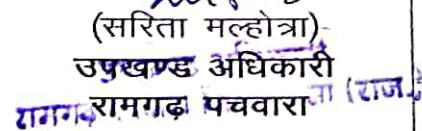 (सरिता मल्होत्रा)
उपखण्ड अधिकारी
रामगढ़ पचवारा (राज.